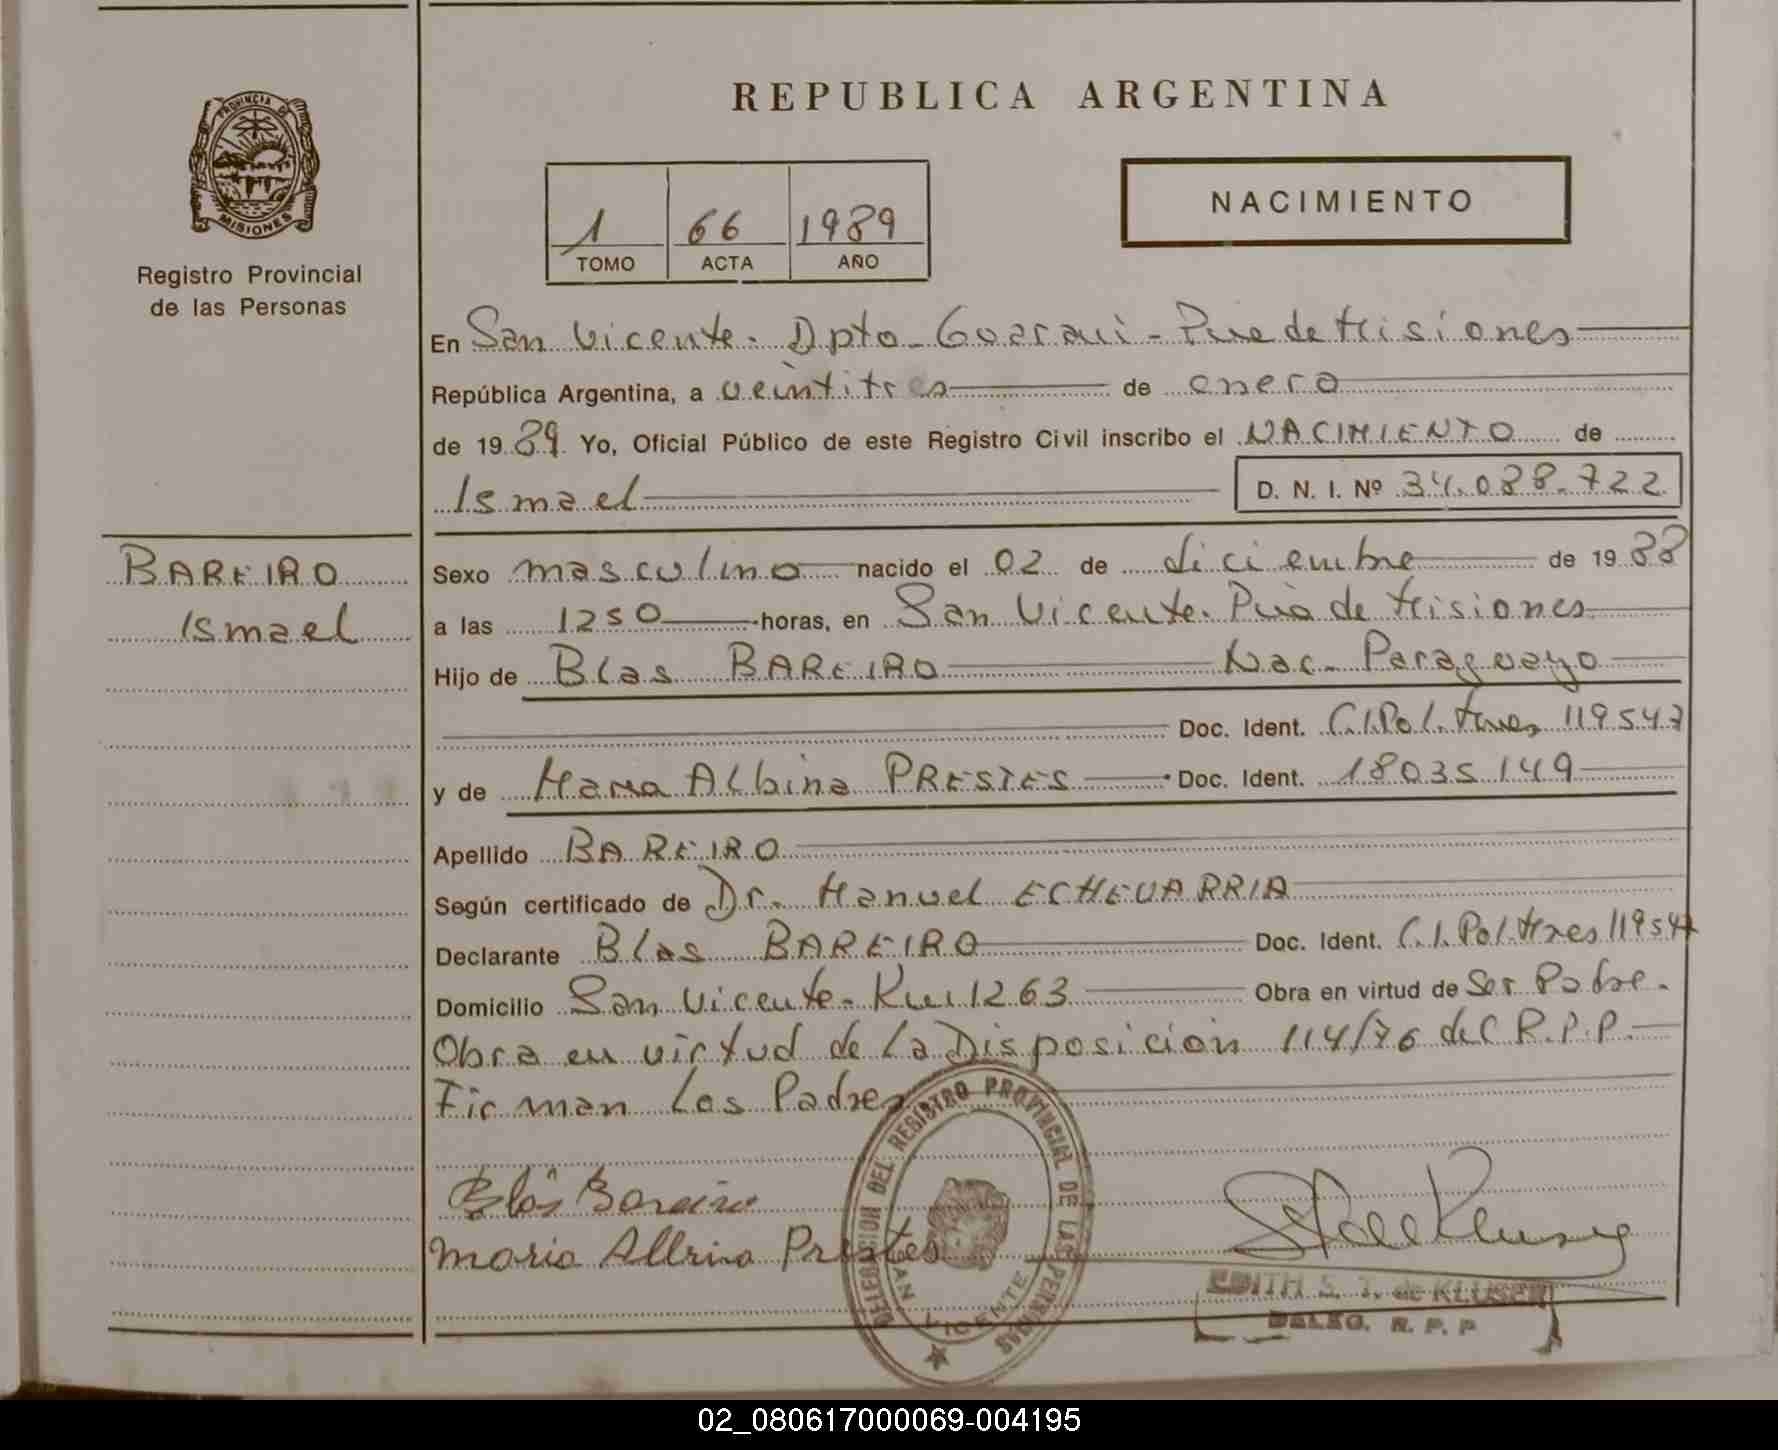 PROVINCIA DE
MISIONES
Registro Provincial
de las Personas
REPUBLICA ARGENTINA
1 66 1989
TOMO ACTA AÑO
NACIMIENTO
En San Vicente. Dpto. Guaraui - Pcia de Misiones
República Argentina, a veintitres de enero
de 1989 Yo, Oficial Público de este Registro Civil inscribo el NACIMIENTO de
Ismael D. N. I. Nº 34.088.722
BAREIRO
Ismael
Sexo masculino nacido el 02 de diciembre de 1988
a las 1250 horas, en San Vicente. Pcia de Misiones
Hijo de Blas BAREIRO Nac. Paraguayo
Doc. Ident. C.I.Pol. Mnes 119547
y de Maria Albina PRESTES Doc. Ident. 18035149
Apellido BAREIRO
Según certificado de Dr. Manuel ECHEVARRIA
Declarante Blas BAREIRO Doc. Ident. C.I.Pol. Mnes 119547
Domicilio San Vicente. Km 1263 Obra en virtud de Ser Padre.
Obra en virtud de la Disposición 114/76 del R.P.P.
Firman Los Padres
Blás Bareiro
Maria Albina Prestes
DELEGACION DEL REGISTRO PROVINCIAL DE LAS PERSONAS
SAN VICENTE
EDITH S. T. de KLUSER
DELEG. R. P. P
02_080617000069-004195